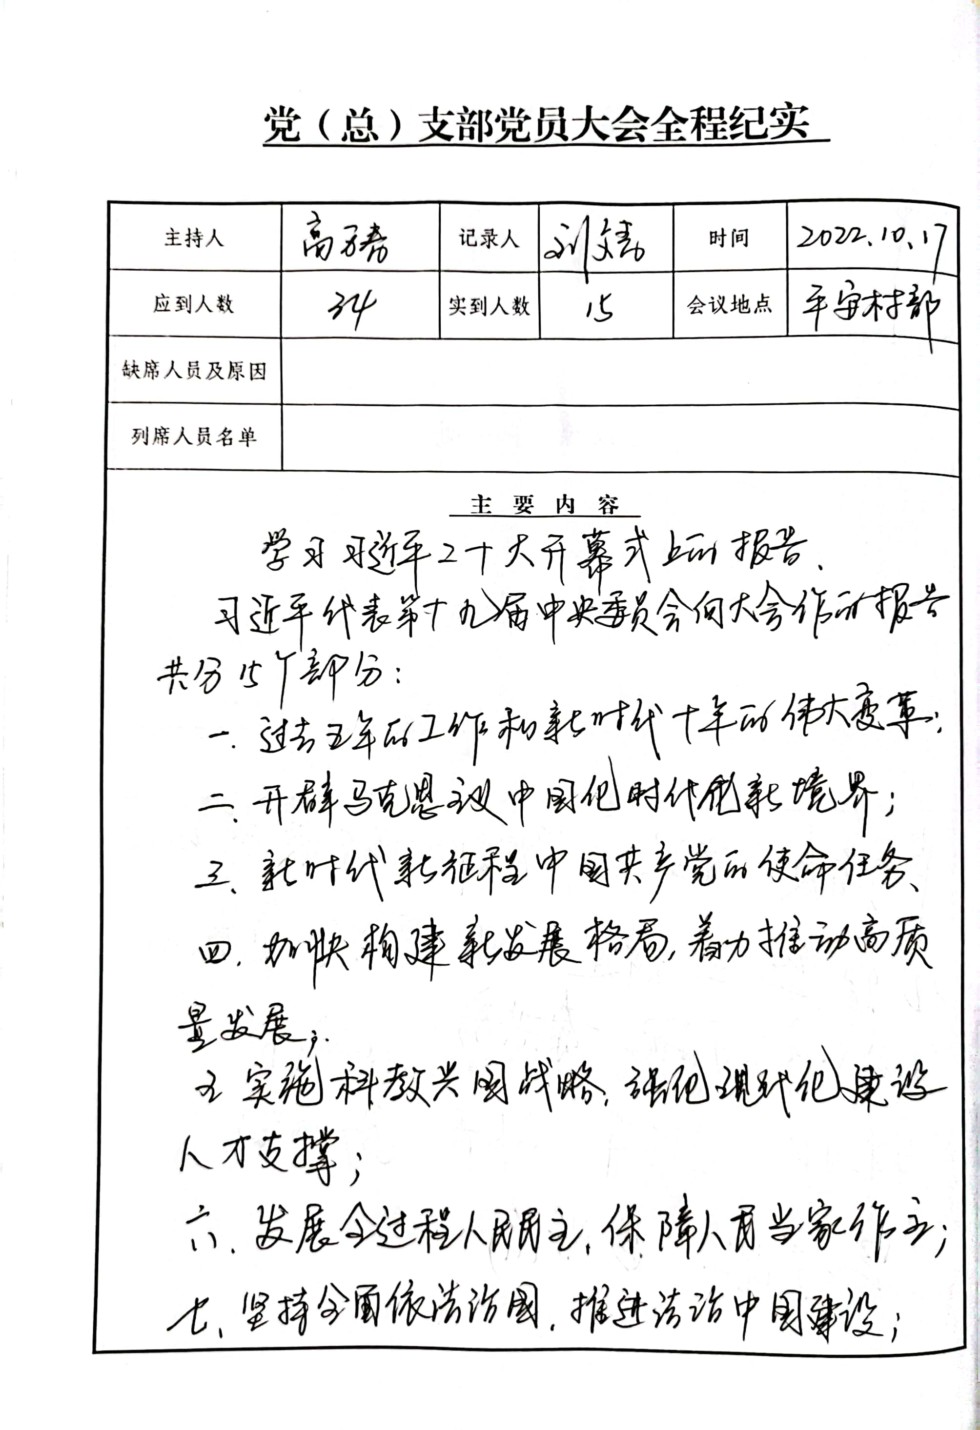 党（总）支部党员大会全程纪实
主持人 高 记录人 刘 时间 2022.10.17
应到人数 34 实到人数 15 会议地点 平安村部
缺席人员及原因
列席人员名单
主要内容
学习习近平二十大开幕式上的报告、
习近平代表第十九届中央委员会向大会作的报告
共分15个部分：
一、过去五年的工作和新时代十年的伟大变革；
二、开辟马克思主义中国化时代化新境界；
三、新时代新征程中国共产党的使命任务、
四、加快构建新发展格局，着力推动高质
量发展；
五实施科教兴国战略，强化现代化建设
人才支撑；
六、发展全过程人民民主，保障人民当家作主；
七、坚持全面依法治国，推进法治中国建设；